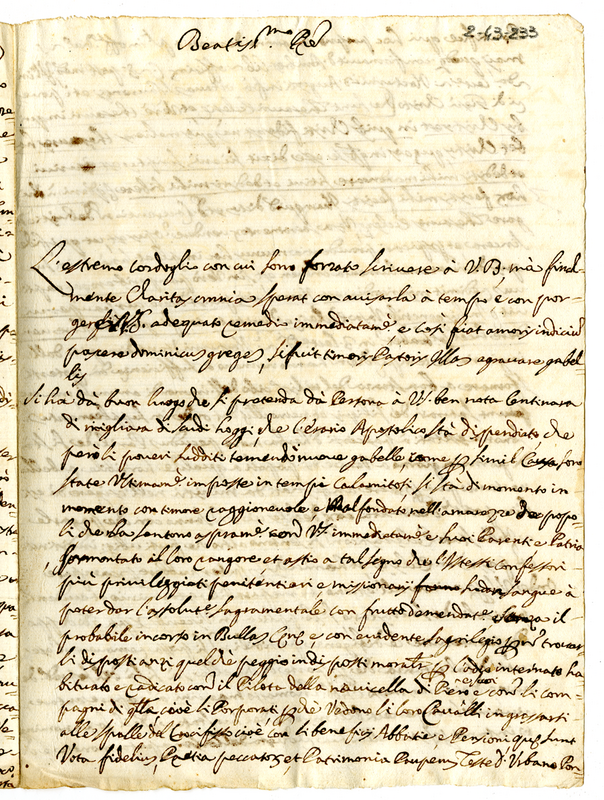 2-43,233
Beatiss.mo P̃re
L'estremo cordoglio con cui sono forzato scriuere à V. B. mà final-
mente Charitas omnia sperat con auisarla à tempo e con por-
gersi adequato remedio immediatamẽ, e così fiat amoris indiciũ
pascere dominicus greges, si fuit timoris Pastoris illas agrauare gabel-
lis
Si hà dà buon luogo che si pretenda dà Persona à V. ben nota Centinara
di migliara di scudi hoggi, che l'Erario Apostolico stà dispendiato che
però li poueri sudditi temendo nuoue gabelle, come simil Causa sono
state Vltimamẽ. imposte in tempi Calamitosi si stà di momento in
momento con timore raggioneuole e mal fondato nell'amarezze de popo-
li che la sentono aspramẽ con V. immediatamẽ e suoi Parenti e Patria
sormontato il loro rancore et astio a tal segno che l'istessi confessori
più priuileggiati penitentieri e missionarij sudan sangue à
poter dar l'assolutẽ sagramentale con frutto d'emendatẽ il
probabile incorso in Bulla e con euidente sagrilegio trouar
li disposti anzi quel ch'è peggio indisposti l'odio internato ha
bituato e radicato con il Pilota della nauicella di Piero e con li com-
pagni di qlla cioè li Porporati che Vedono li loro Caualli ingrassarsi
alle spalle del Crocifisso cioè con li beneficij Abbatie e Pensioni que sunt
Vota fidelium, Pretia peccator, et Patrimonia Pauperum Teste Vrbano Pon-